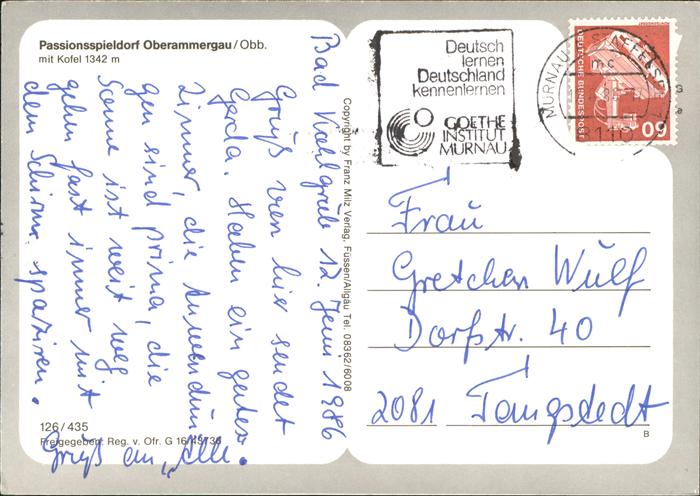 Passionsspieldorf Oberammergau/Obb.
mit Kofel 1342 m
Bad Kohlgrub 12. Juni 1986
Gruß von hier sendet
Gerda. Haben ein gutes
Zimmer, die Anwendun
gen sind prima, die
Sonne ist weit weg
gehen fast immer mit
dem Schirm spaziren.
Gruß an „Alle.
126/435
Freigegeben: Reg. v. Ofr. G 16/43736
Copyright by Franz Milz Verlag, Füssen/Allgäu Tel. 08362/6008
Deutsch
lernen
Deutschland
kennenlernen
GOETHE
INSTITUT
MURNAU
MURNAU A. STAFFELSEE
mc
8110
DEUTSCHE BUNDESPOST
60
Frau
Gretchen Wulf
Dorfstr. 40
2081 Tangstedt
B